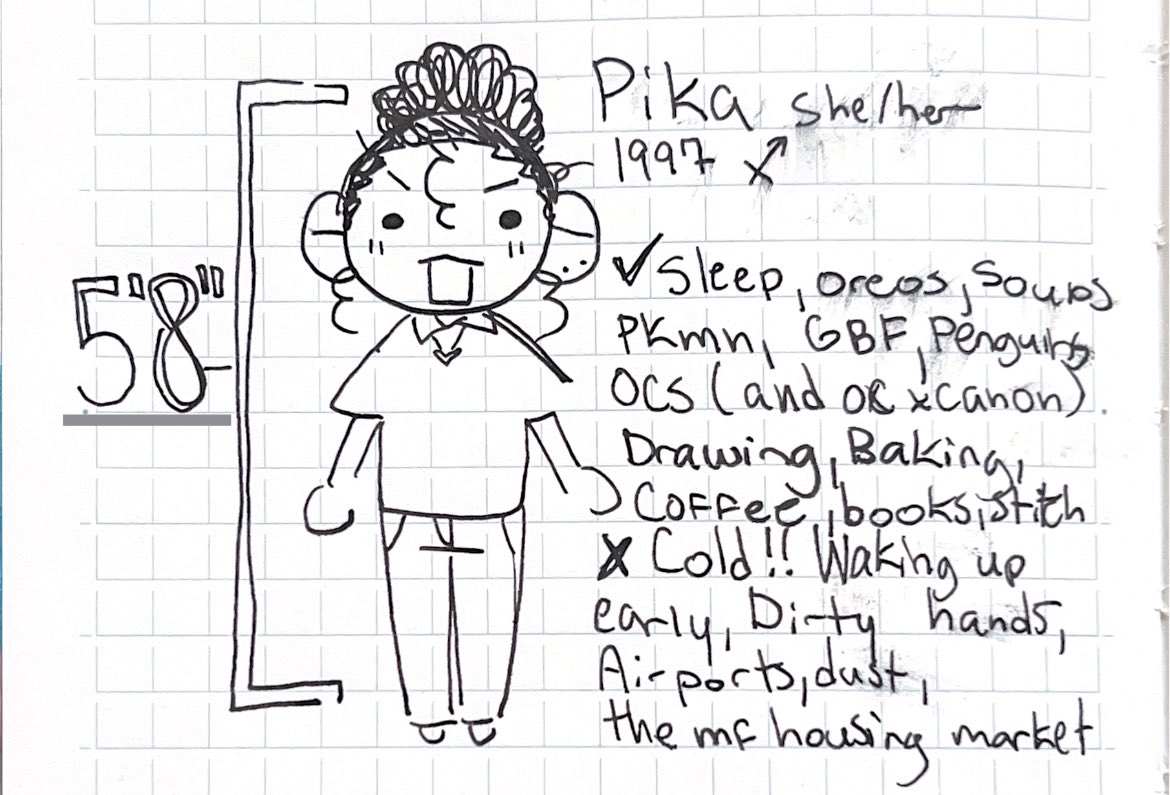 Pika she/her
1997 ♐
5'8"
✓ Sleep, oreos, Soups
PKmn, GBF, Penguins
OCS (and OC x canon).
Drawing, Baking,
Coffee, books, Stitch
X Cold!! Waking up
early, Dirty hands,
Airports, dust,
the mf housing market